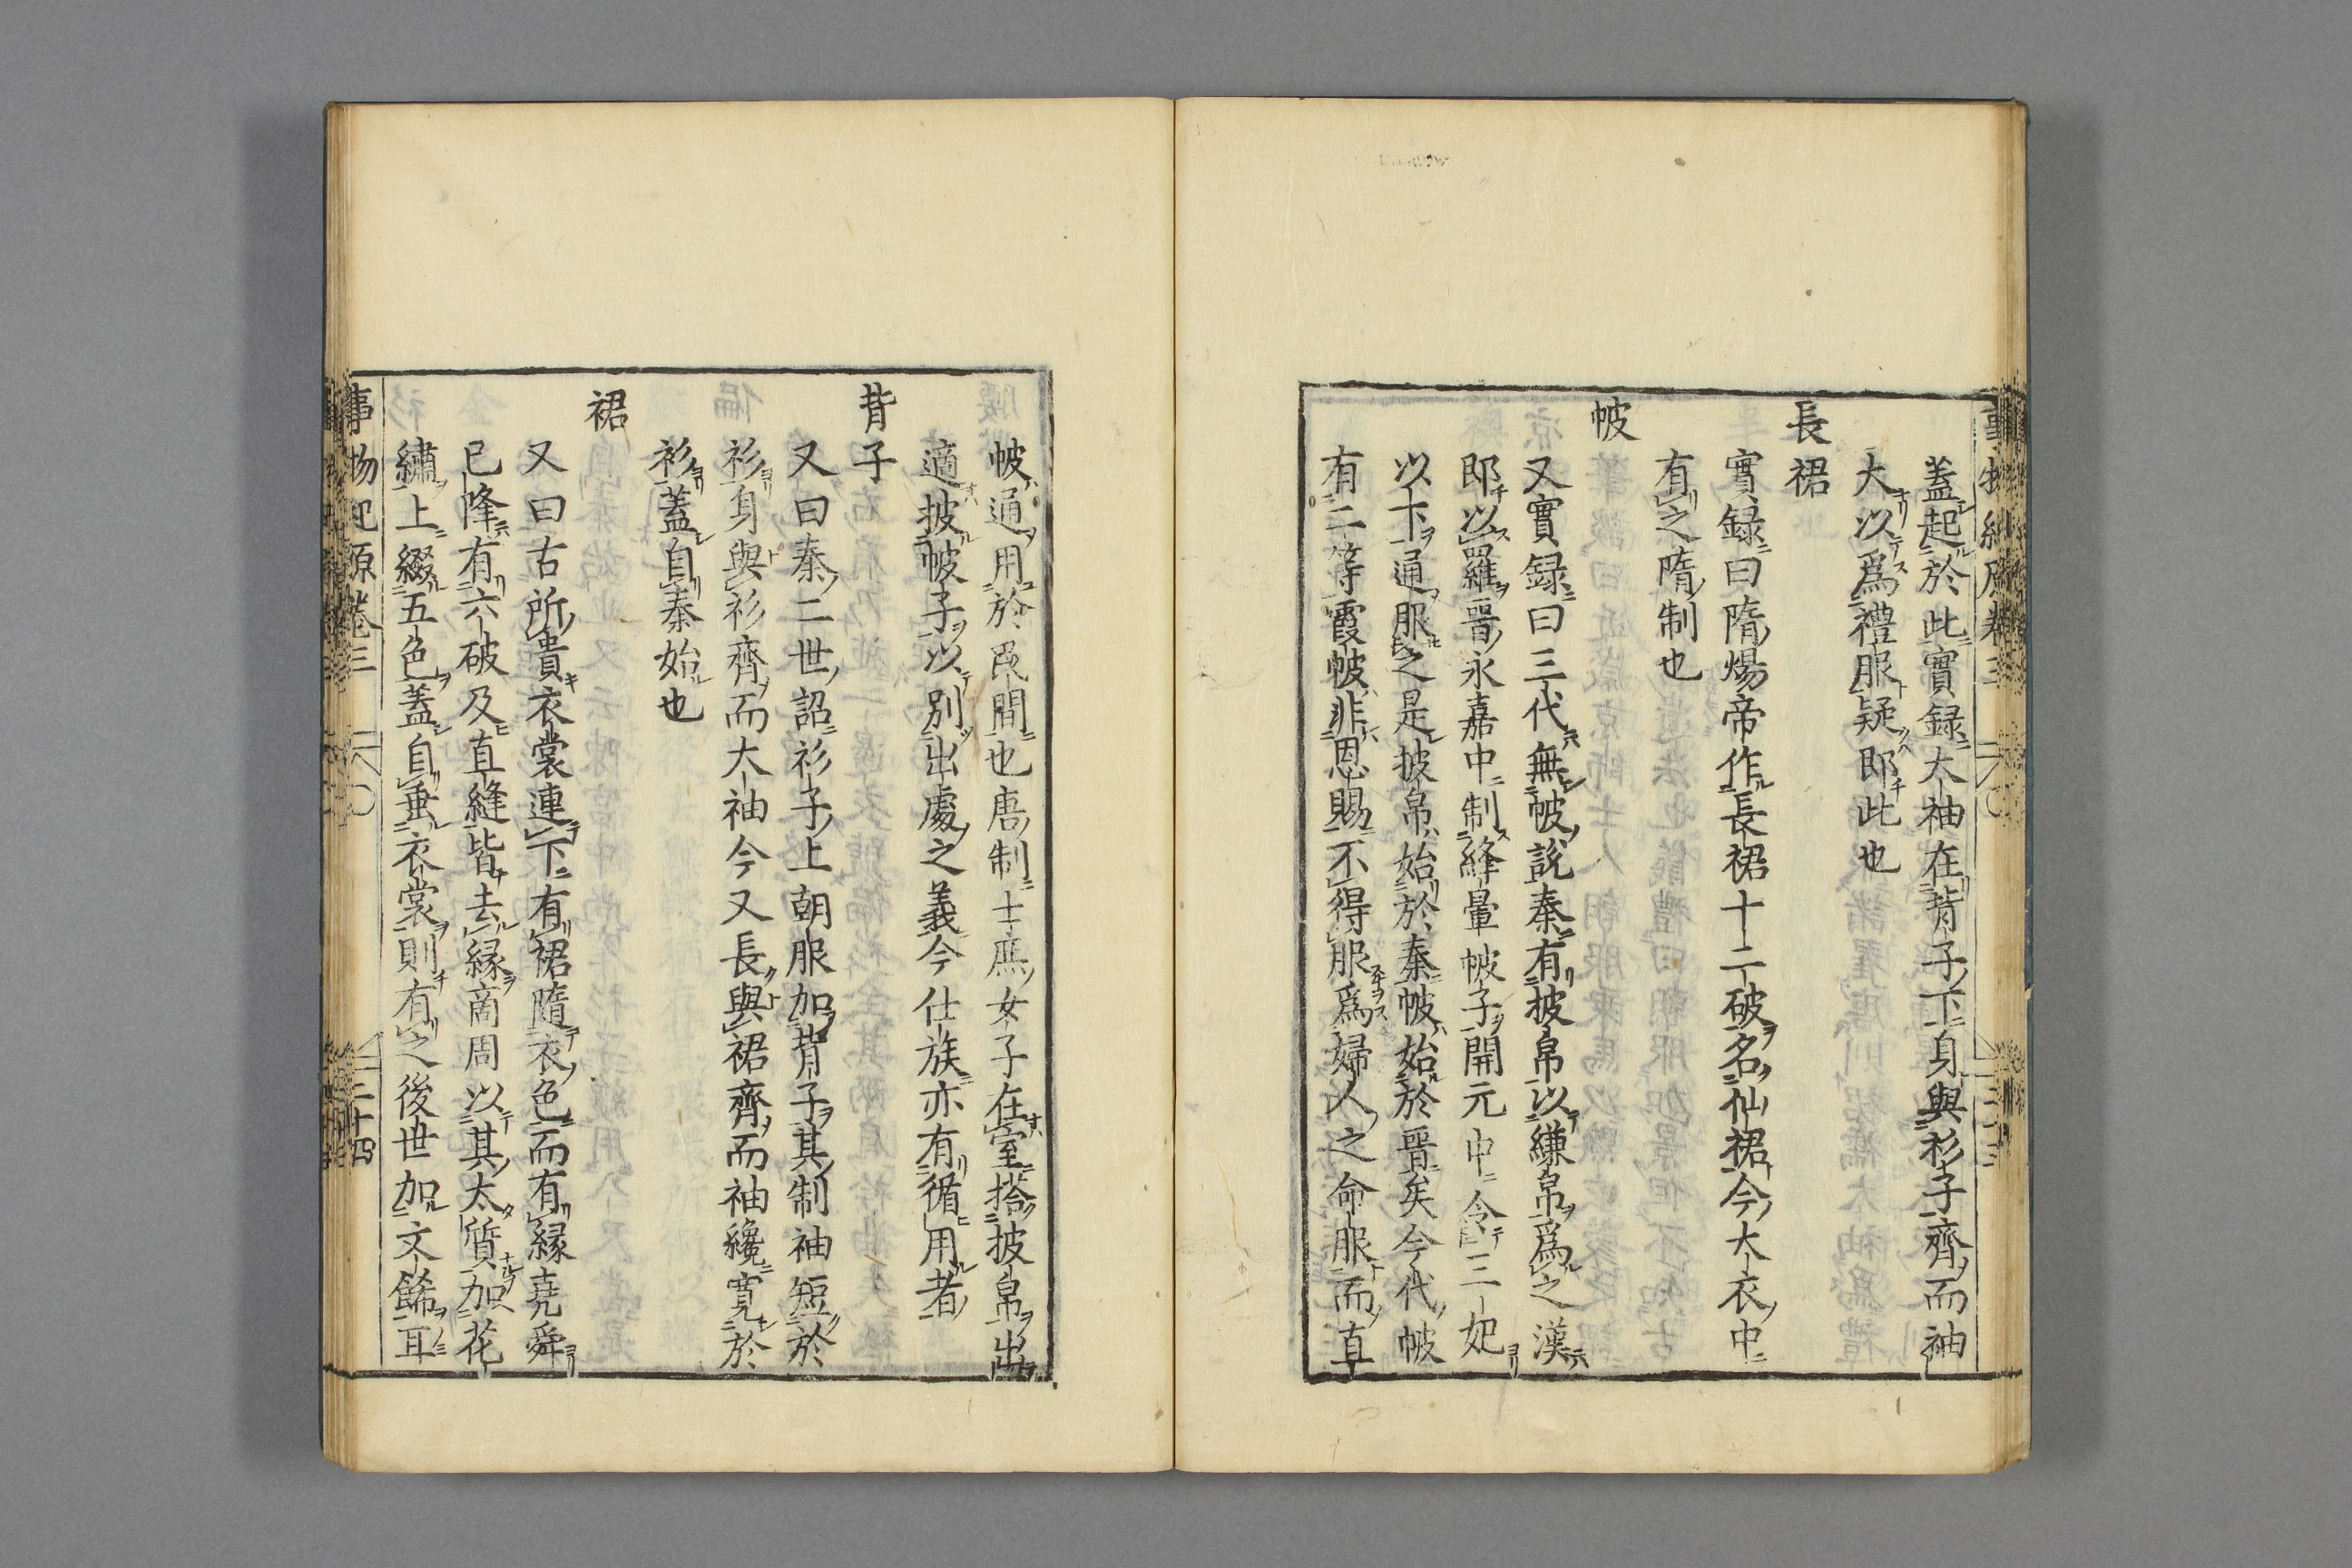 蓋起於此實録大袖在背子下身與衫子齊而袖
大以爲禮服疑即此也
長裙
實録曰隋煬帝作長裙十二破名仙裙今大衣中
有之隋制也
帔
又實録曰三代無帔説秦有披帛以縑帛爲之漢
即以羅晋永嘉中制絳暈帔子開元中令三妃
以下通服之是披帛始於秦帔始於晋矣今代帔
有二等霞帔非恩賜不得服爲婦人之命服而直
帔通用於民間也唐制士庶女子在室搭披帛出
適披帔子以別出處之義今仕族亦有循用者
背子
又曰秦二世詔衫子上朝服加背子其制袖短於
衫身與衫齊而大袖今又長與裙齊而袖纔寛於
衫蓋自秦始也
裙
又曰古所貴衣裳連下有裙隨衣色而有縁堯舜
已降有六破及直縫皆去縁商周以其太質加花
繡上綴五色蓋自垂衣裳則有之後世加文餙耳
事物紀原卷三
二十四